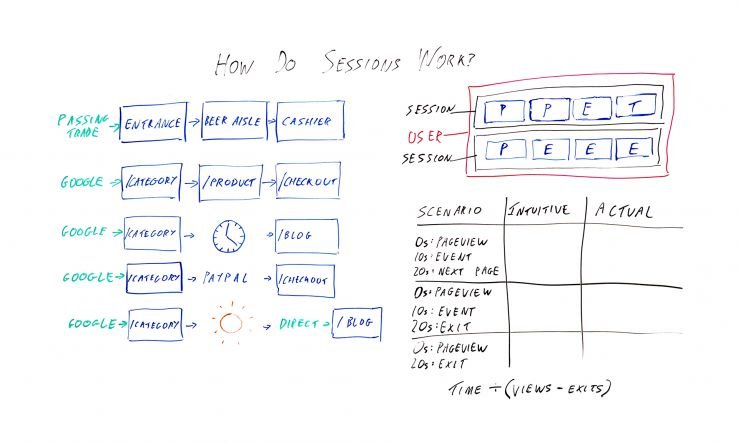 HOW DO SESSIONS WORK?
PASSING TRADE → ENTRANCE → BEER AISLE → CASHIER
GOOGLE → /CATEGORY → /PRODUCT → /CHECKOUT
GOOGLE → /CATEGORY → → /BLOG
GOOGLE → /CATEGORY → PAYPAL → /CHECKOUT
GOOGLE → /CATEGORY → → DIRECT → /BLOG
SESSION P P E T
USER
SESSION P E E E
SCENARIO INTUITIVE ACTUAL
0s: PAGEVIEW
10s: EVENT
20s: NEXT PAGE
0s: PAGEVIEW
10s: EVENT
20s: EXIT
0s: PAGEVIEW
20s: EXIT
TIME ÷ (VIEWS - EXITS)